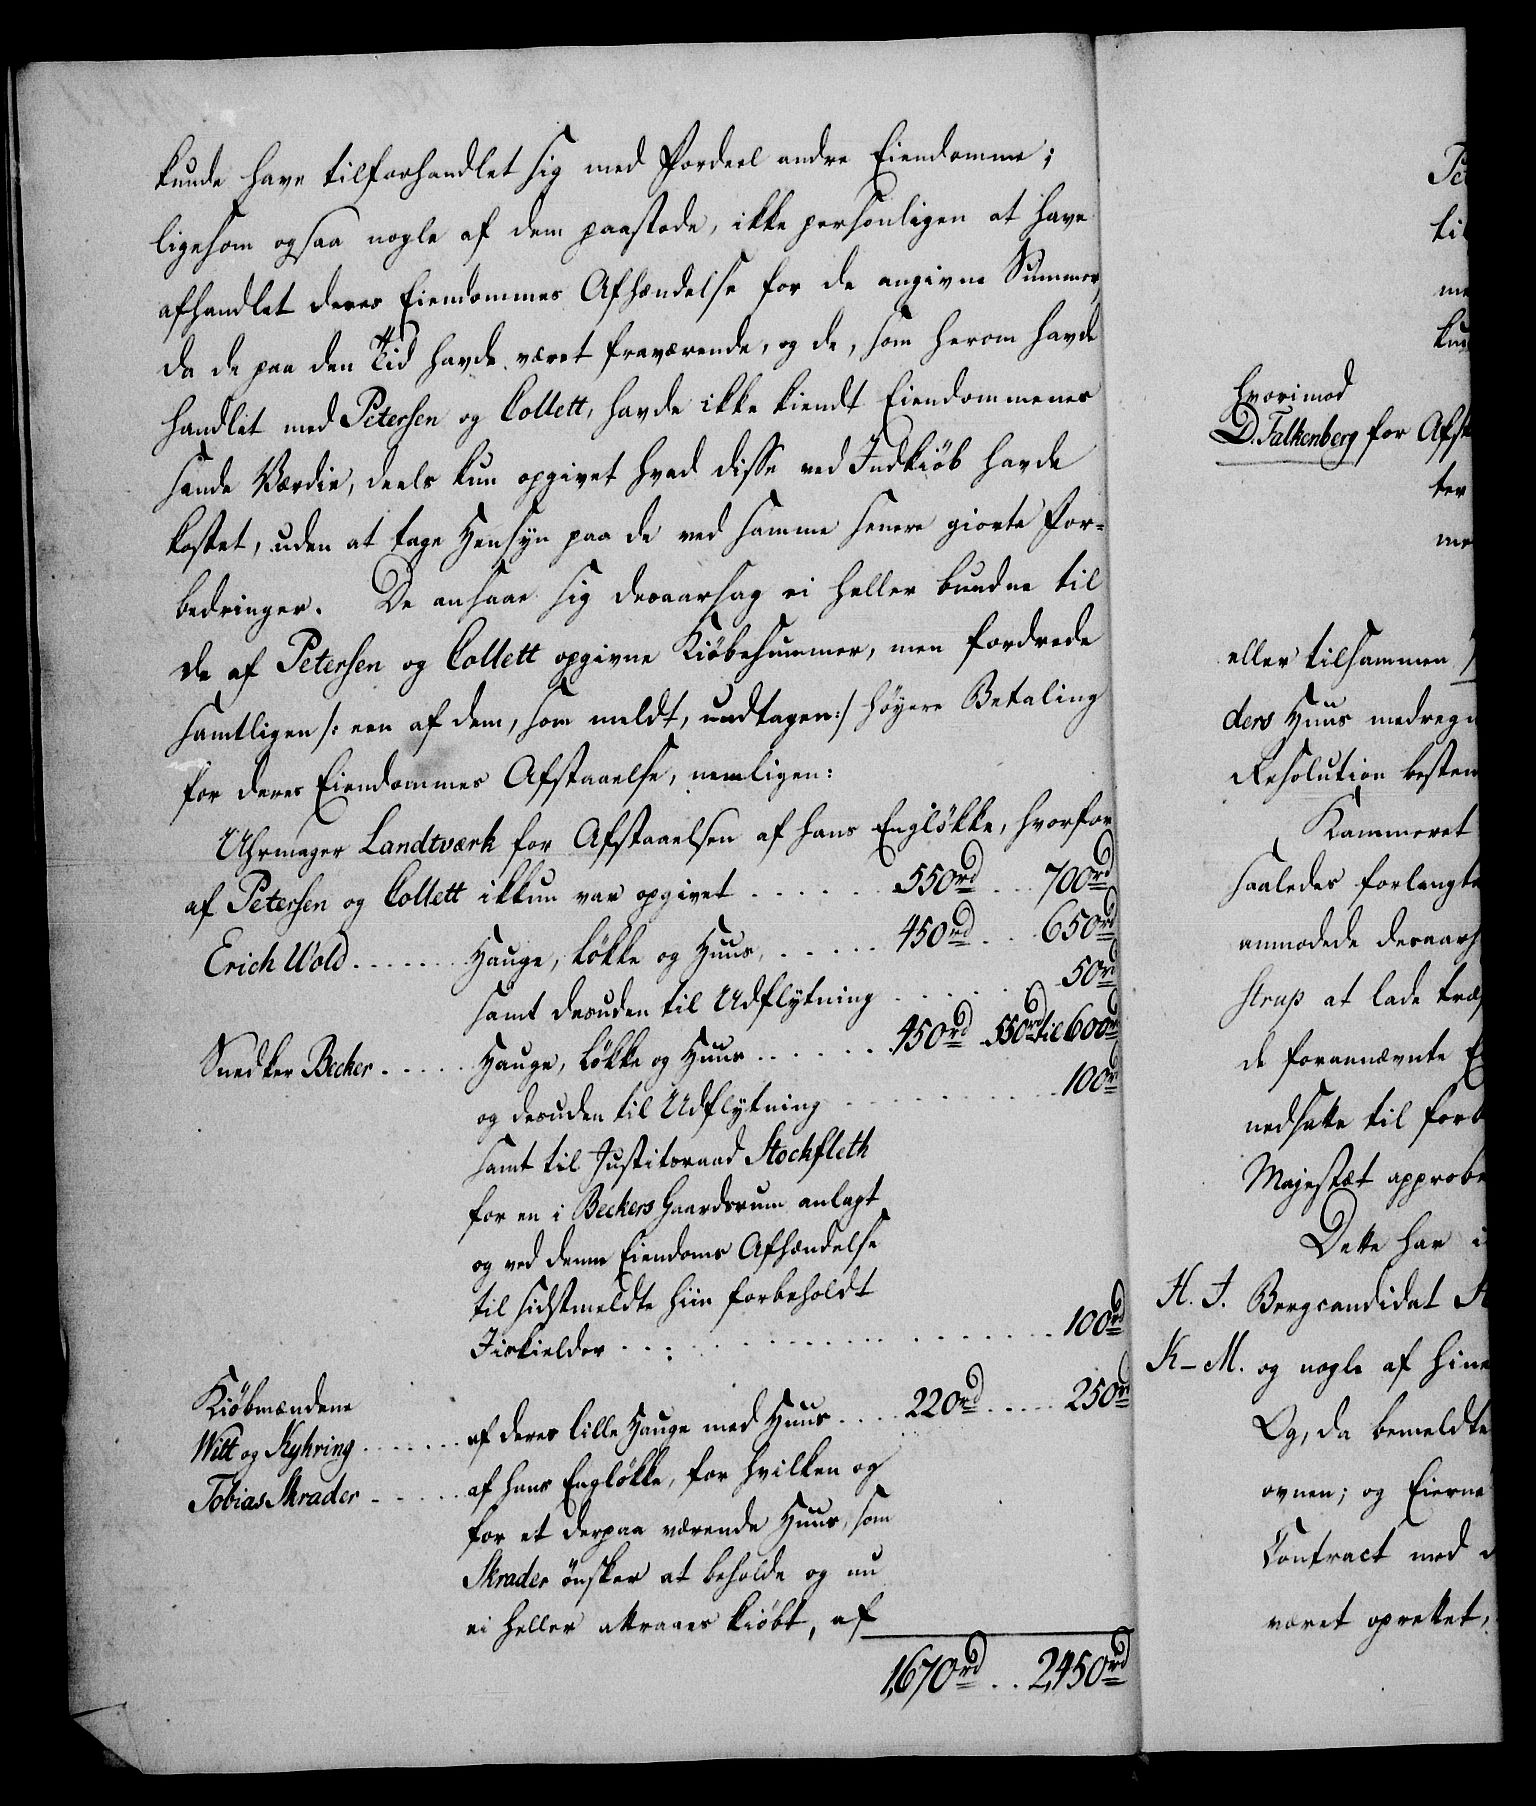 kunde have tilforhandlet sig med Fordeel andre Eiendomme;
ligesom ogsaa nogle af dem paastode, ikke personligen at have
afhandlet deres Eiendommes Afhændelse for de angivne Summer,
da de paa den Tid havde været fraværende, og de, som herom havde
handlet med Petersen og Collett, havde ikke kiendt Eiendommenes
sande Værdie, deels kun opgivet hvad disse ved Indkiöb havde
kostet, uden at tage Hensyn paa de ved samme senere giorte For-
bedringer. De ansaae sig desaarsag ei heller bundne til
de af Petersen og Collett opgivne Kiöbesummer, men fordrede
samtligen /: een af dem, som meldt, undtagen:/ höyere Betaling
for deres Eiendommes Afstaaelse, nemligen:
Uhrmager Landtværk for Afstaaelsen af hans Englökke, hvorfor
af Petersen og Collett ikkun var opgivet ...... 550rd .. 700rd
Erich Wold ...... Hauge, Lökke og Huus, ..... 450rd .. 650rd
samt desuden til Udflytning ...... 50rd
Snedker Becker ..... Hauge, Lökke og Huus ...... 450rd 550rd til 600rd
og desuden til Udflytning ........ 100rd
samt til Justitsraad Stockfleth
for en i Beckers Gaardsrum anlagt
og ved denne Eiendoms Afhændelse
til sidstmeldte hiin forbeholdt
Iiskielder ............ 100rd
Kiöbmændene
Witt og Kyhring ....... af deres lille Hauge med Huus .... 220rd ..... 250rd
Tobias Skrader ..... af hans Englökke, for hvilken og
for et derpaa værende Huus, som
Skrader önsker at beholde og nu
ei heller attraaes kiöbt, af
1,670rd .. 2,450rd
Pet
til
me
kun
hvorimod
D. Falkenberg for Afst
ter
me
eller tilsammen
ders Huus medregn
Resolution bestem
Kammeret
saaledes forlangte
anmodede desaars
strup at lade træ
de forannævnte E
nedsatte til forb
Majestæt approbe
Dette har i
H. J. Bergcandidat
K-M. og nogle af hine
Og, da bemeldte
ovnen; og Eierne
Contract med d
været oprettet,